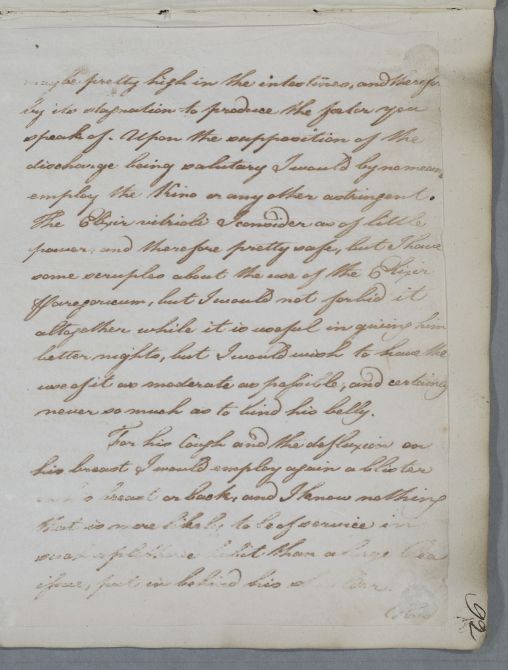 maybe pretty high in the intestines, and therefore
by its stagnation to produce the fætor you
speak of. Upon the supposition of the
discharge being salutary I would by no means
employ the Kino or any other astringent.
The Elixir vitrioli I consider as of little
power, and therefore pretty safe, but I have
some scruples about the use of the Elixir
Paregoricum, but I would not forbid it
altogether while it is useful in giving him
better nights, but I would wish to have the
use of it as moderate as possible, and certainly
never so much as to bind his belly.
For his Cough and the defluxion on
his breast I would employ again a blister
breast or back, and I know nothing
that is more likely to be of service in
habit than a large Pea
issue, put in behind his
92